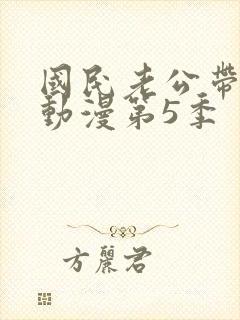 國民老公帶
動漫第5季
方麗君